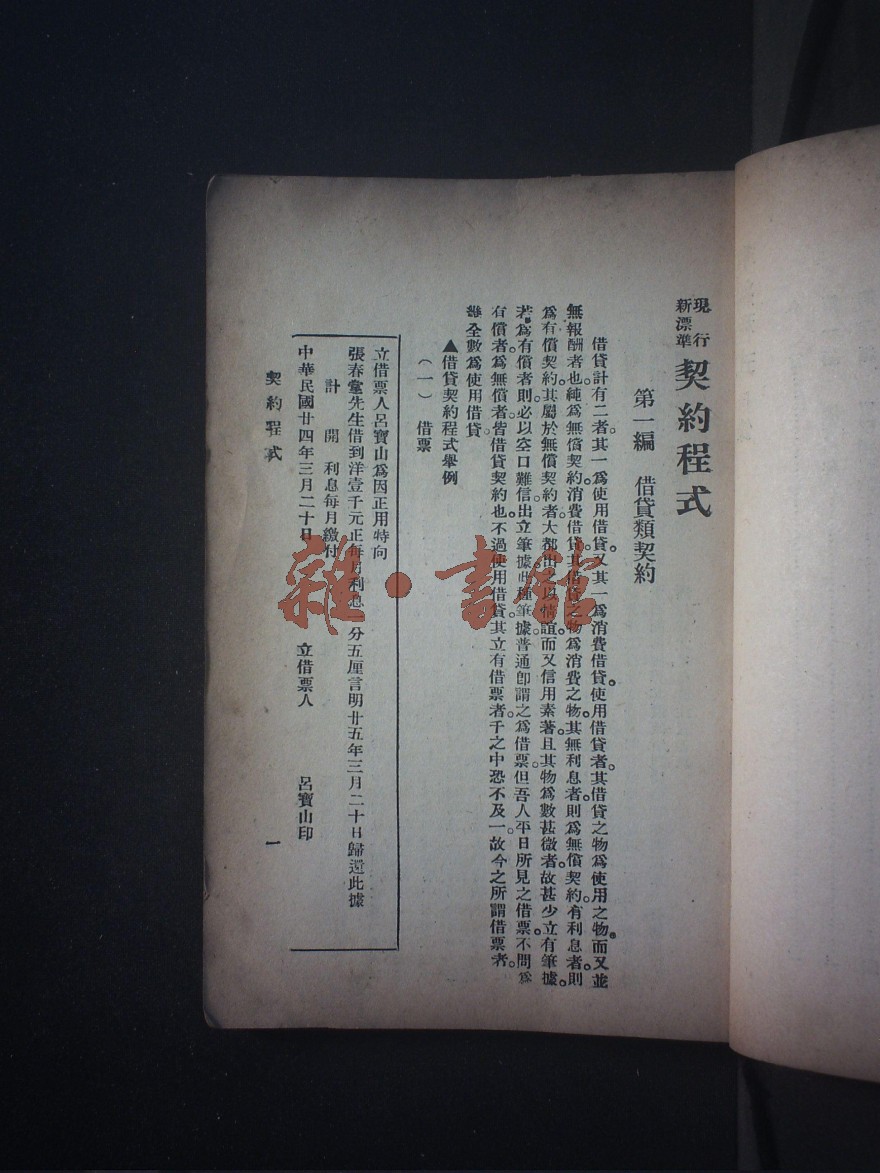 現行
新漂準
契約程式
第一編 借貸類契約
借貸計有二者。其一爲使用借貸。又其一爲消費借貸。使用借貸者。其借貸之物爲使用之物。而又並
無報酬者也。純爲無償契約。消費借貸。其借貸之物。爲消費之物。其無利息者。則爲無償契約。有利息者。則
爲有償契約。其屬於無償契約者。大都出之以情誼。而又信用素著。且其物爲數甚微者。故甚少立有筆據。
若爲有償者。則必以空口難信。出立筆據。此種筆據。普通卽謂之爲借票。但吾人平日所見之借票。不問爲
有償者。爲無償者。皆借貸契約也。不過使用借貸。其立有借票者。千之中恐不及一。故今之所謂借票者。
全數爲使用借貸
▲借貸契約程式舉例
(一) 借票
立借票人呂寶山爲因正用特向
張春堂先生借到洋壹千元正每月利息 分五厘言明廿五年三月二十日歸還此據
計開 利息每月繳付
中華民國廿四年三月二十日 立借票人 呂寶山印
契約程式 一
雜·書館